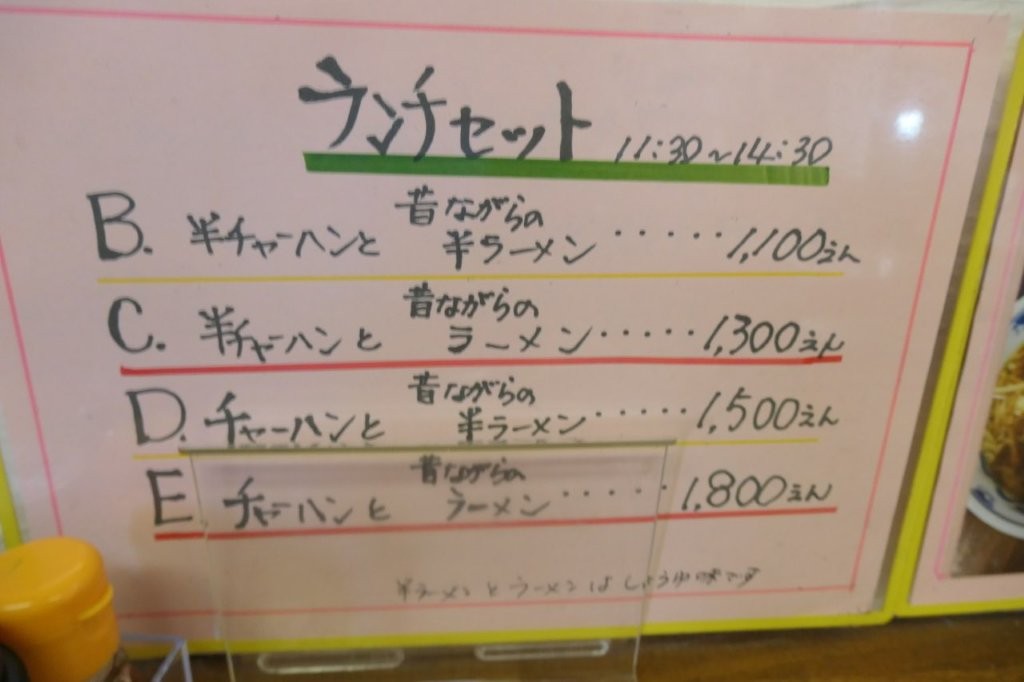 ランチセット 11:30～14:30
B. 半チャーハンと 昔ながらの
半ラーメン ・・・・・ 1,100えん
C. 半チャーハンと 昔ながらの
ラーメン ・・・・・ 1,300えん
D. チャーハンと 昔ながらの
半ラーメン ・・・・・ 1,500えん
E チャーハンと 昔ながらの
ラーメン ・・・・・ 1,800えん
半ラーメンとラーメンはしょうゆ味です